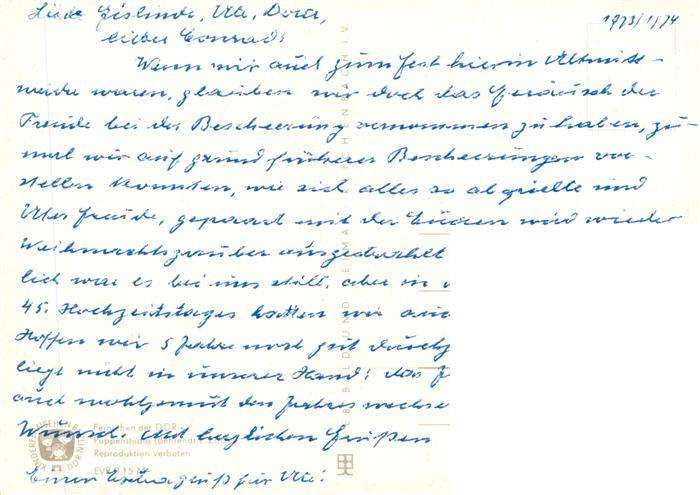 Liebe Gislinde, Ute, Dora,
lieber Conrad!
1973/1974
Wenn wir auch zum Fest hier in Altmitt-
weida waren, glauben wir doch das Geräusch der
Freude bei der Bescheerung vernommen zu haben, zu-
mal wir auf grund früherer Bescheerungen vor-
stellen konnten, wie sich alles so abspielte und
Utes Freude, gepaart mit der wird wieder
Weihnachtszauber ausgestrahlt
lich war es bei uns still, aber in
45. Hochzeitstages hatten wir auc
Hoffen wir 5 Jahre noch gut durchz
liegt nicht in unserer Hand! das
auch wohlgemut den Jahreswechse
Wunsch. Mit herzlichen Grüßen
Einen Extragruß für Ute!
Fernsehen der DDR -
Puppenstudio (Behrendt)
Reproduktion verboten
EVP 0,15 M